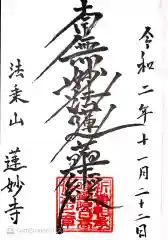 令和二年十一月二十二日
南無妙法蓮華経
法乗山
蓮妙寺